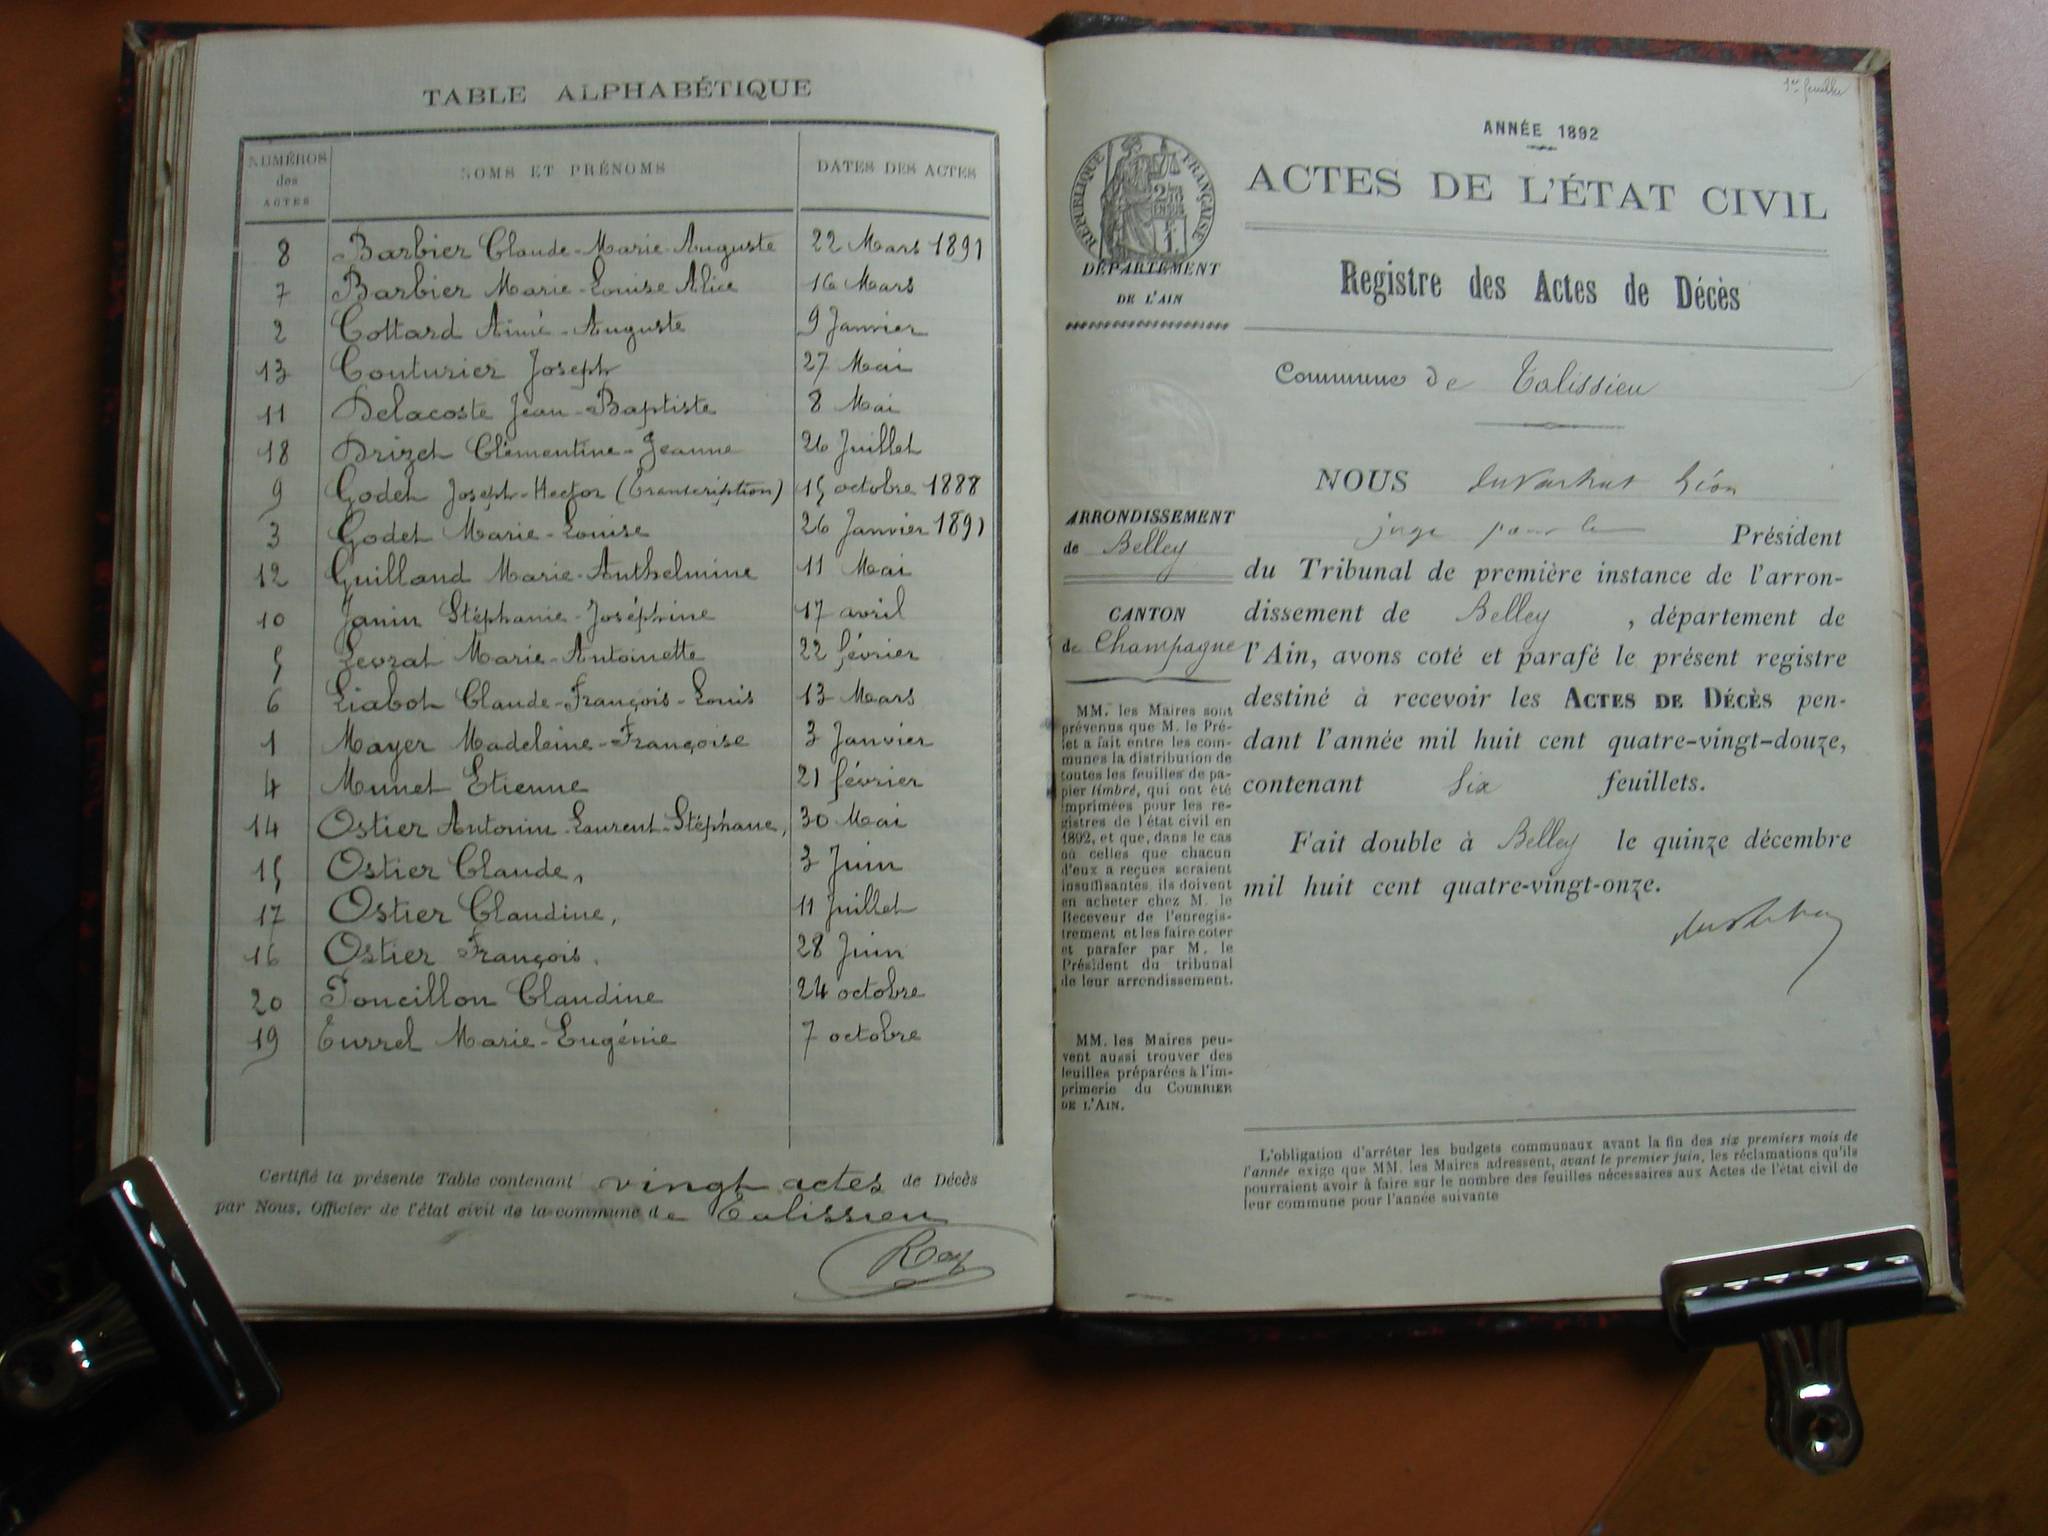 TABLE ALPHABÉTIQUE
NUMÉROS des ACTES NOMS ET PRÉNOMS DATES DES ACTES
8 Barbier Claude-Marie-Auguste 22 Mars 1891
7 Barbier Marie-Louise Alice 16 Mars
2 Cottard Aimé-Auguste 9 Janvier
13 Couturier Joseph 27 Mai
11 Delacoste Jean-Baptiste 8 Mai
18 Drizet Clémentine-Jeanne 26 Juillet
9 Godet Joseph-Hector (Transcription) 15 octobre 1888
3 Godet Marie-Louise 26 Janvier 1891
12 Guilland Marie-Anthelmine 11 Mai
10 Janin Stéphanie-Joséphine 17 avril
5 Levrat Marie-Antoinette 22 février
6 Liabot Claude-François-Louis 13 Mars
1 Mayer Madeleine-Françoise 3 Janvier
4 Munet Etienne 21 février
14 Ostier Antonin-Laurent-Stéphane, 30 Mai
15 Ostier Claude, 3 Juin
17 Ostier Claudine, 11 Juillet
16 Ostier François. 28 Juin
20 Poncillon Claudine 24 octobre
19 Turrel Marie-Eugénie 7 octobre
Certifié la présente Table contenant vingt actes de Décès
par Nous, Officier de l'état civil de la commune de Talissieu
Rey
1er feuillet
ANNÉE 1892
ACTES DE L'ÉTAT CIVIL
RÉPUBLIQUE FRANÇAISE
DÉPARTEMENT
DE L'AIN
Registre des Actes de Décès
Commune de Talissieu
ARRONDISSEMENT
de Belley
CANTON
de Champagne
MM. les Maires sont
prévenus que M. le Pré-
fet a fait entre les com-
munes la distribution de
toutes les feuilles de pa-
pier timbré, qui ont été
imprimées pour les re-
gistres de l'état civil en
1892, et que, dans le cas
où celles que chacun
d'eux a reçues seraient
insuffisantes, ils doivent
en acheter chez M. le
Receveur de l'enregis-
trement et les faire coter
et parafer par M. le
Président du tribunal
de leur arrondissement.
MM. les Maires peu-
vent aussi trouver des
feuilles préparées à l'im-
primerie du COURRIER
DE L'AIN.
NOUS Léon
juge pour le Président
du Tribunal de première instance de l'arron-
dissement de Belley, département de
l'Ain, avons coté et parafé le présent registre
destiné à recevoir les ACTES DE DÉCÈS pen-
dant l'année mil huit cent quatre-vingt-douze,
contenant six feuillets.
Fait double à Belley le quinze décembre
mil huit cent quatre-vingt-onze.
L'obligation d'arrêter les budgets communaux avant la fin des six premiers mois de
l'année exige que MM. les Maires adressent, avant le premier juin, les réclamations qu'ils
pourraient avoir à faire sur le nombre des feuilles nécessaires aux Actes de l'état civil de
leur commune pour l'année suivante